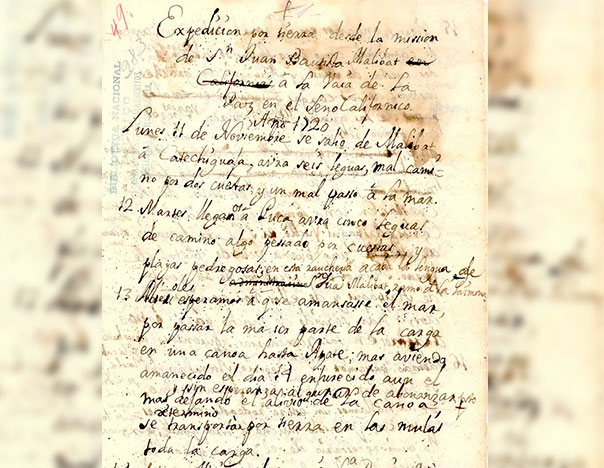 49.
BIBLIOTECA NACIONAL
Expedicion por tierra desde la mission
de Sⁿ Juan Bautista Malibat en
Californias à la Vaia de La
Paz en el Seno Californico.
Año 1720
Lunes 11 de Noviembre se salio de Malibat
à Catechiguajá, avra seis leguas, mal cami-
no por dos cuestas, y un mal passo à la mar.
12 Martes llegamos à Pucá avra cinco leguas
de camino algo pesado por cuestas, y
playas pedregosas, en esta rancheria acaba la lengua de
13 Miercoles esperamos à q se amansasse el mar,
por passar la maior parte de la carga
en una canoa hasta Apate; mas aviendo
amanecido el dia 14 enfurecido aun el
mar, y sin esperanza de abonanzar
dejando el alivio de la canoa
se transportàn por tierra en las mulas
toda la carga.